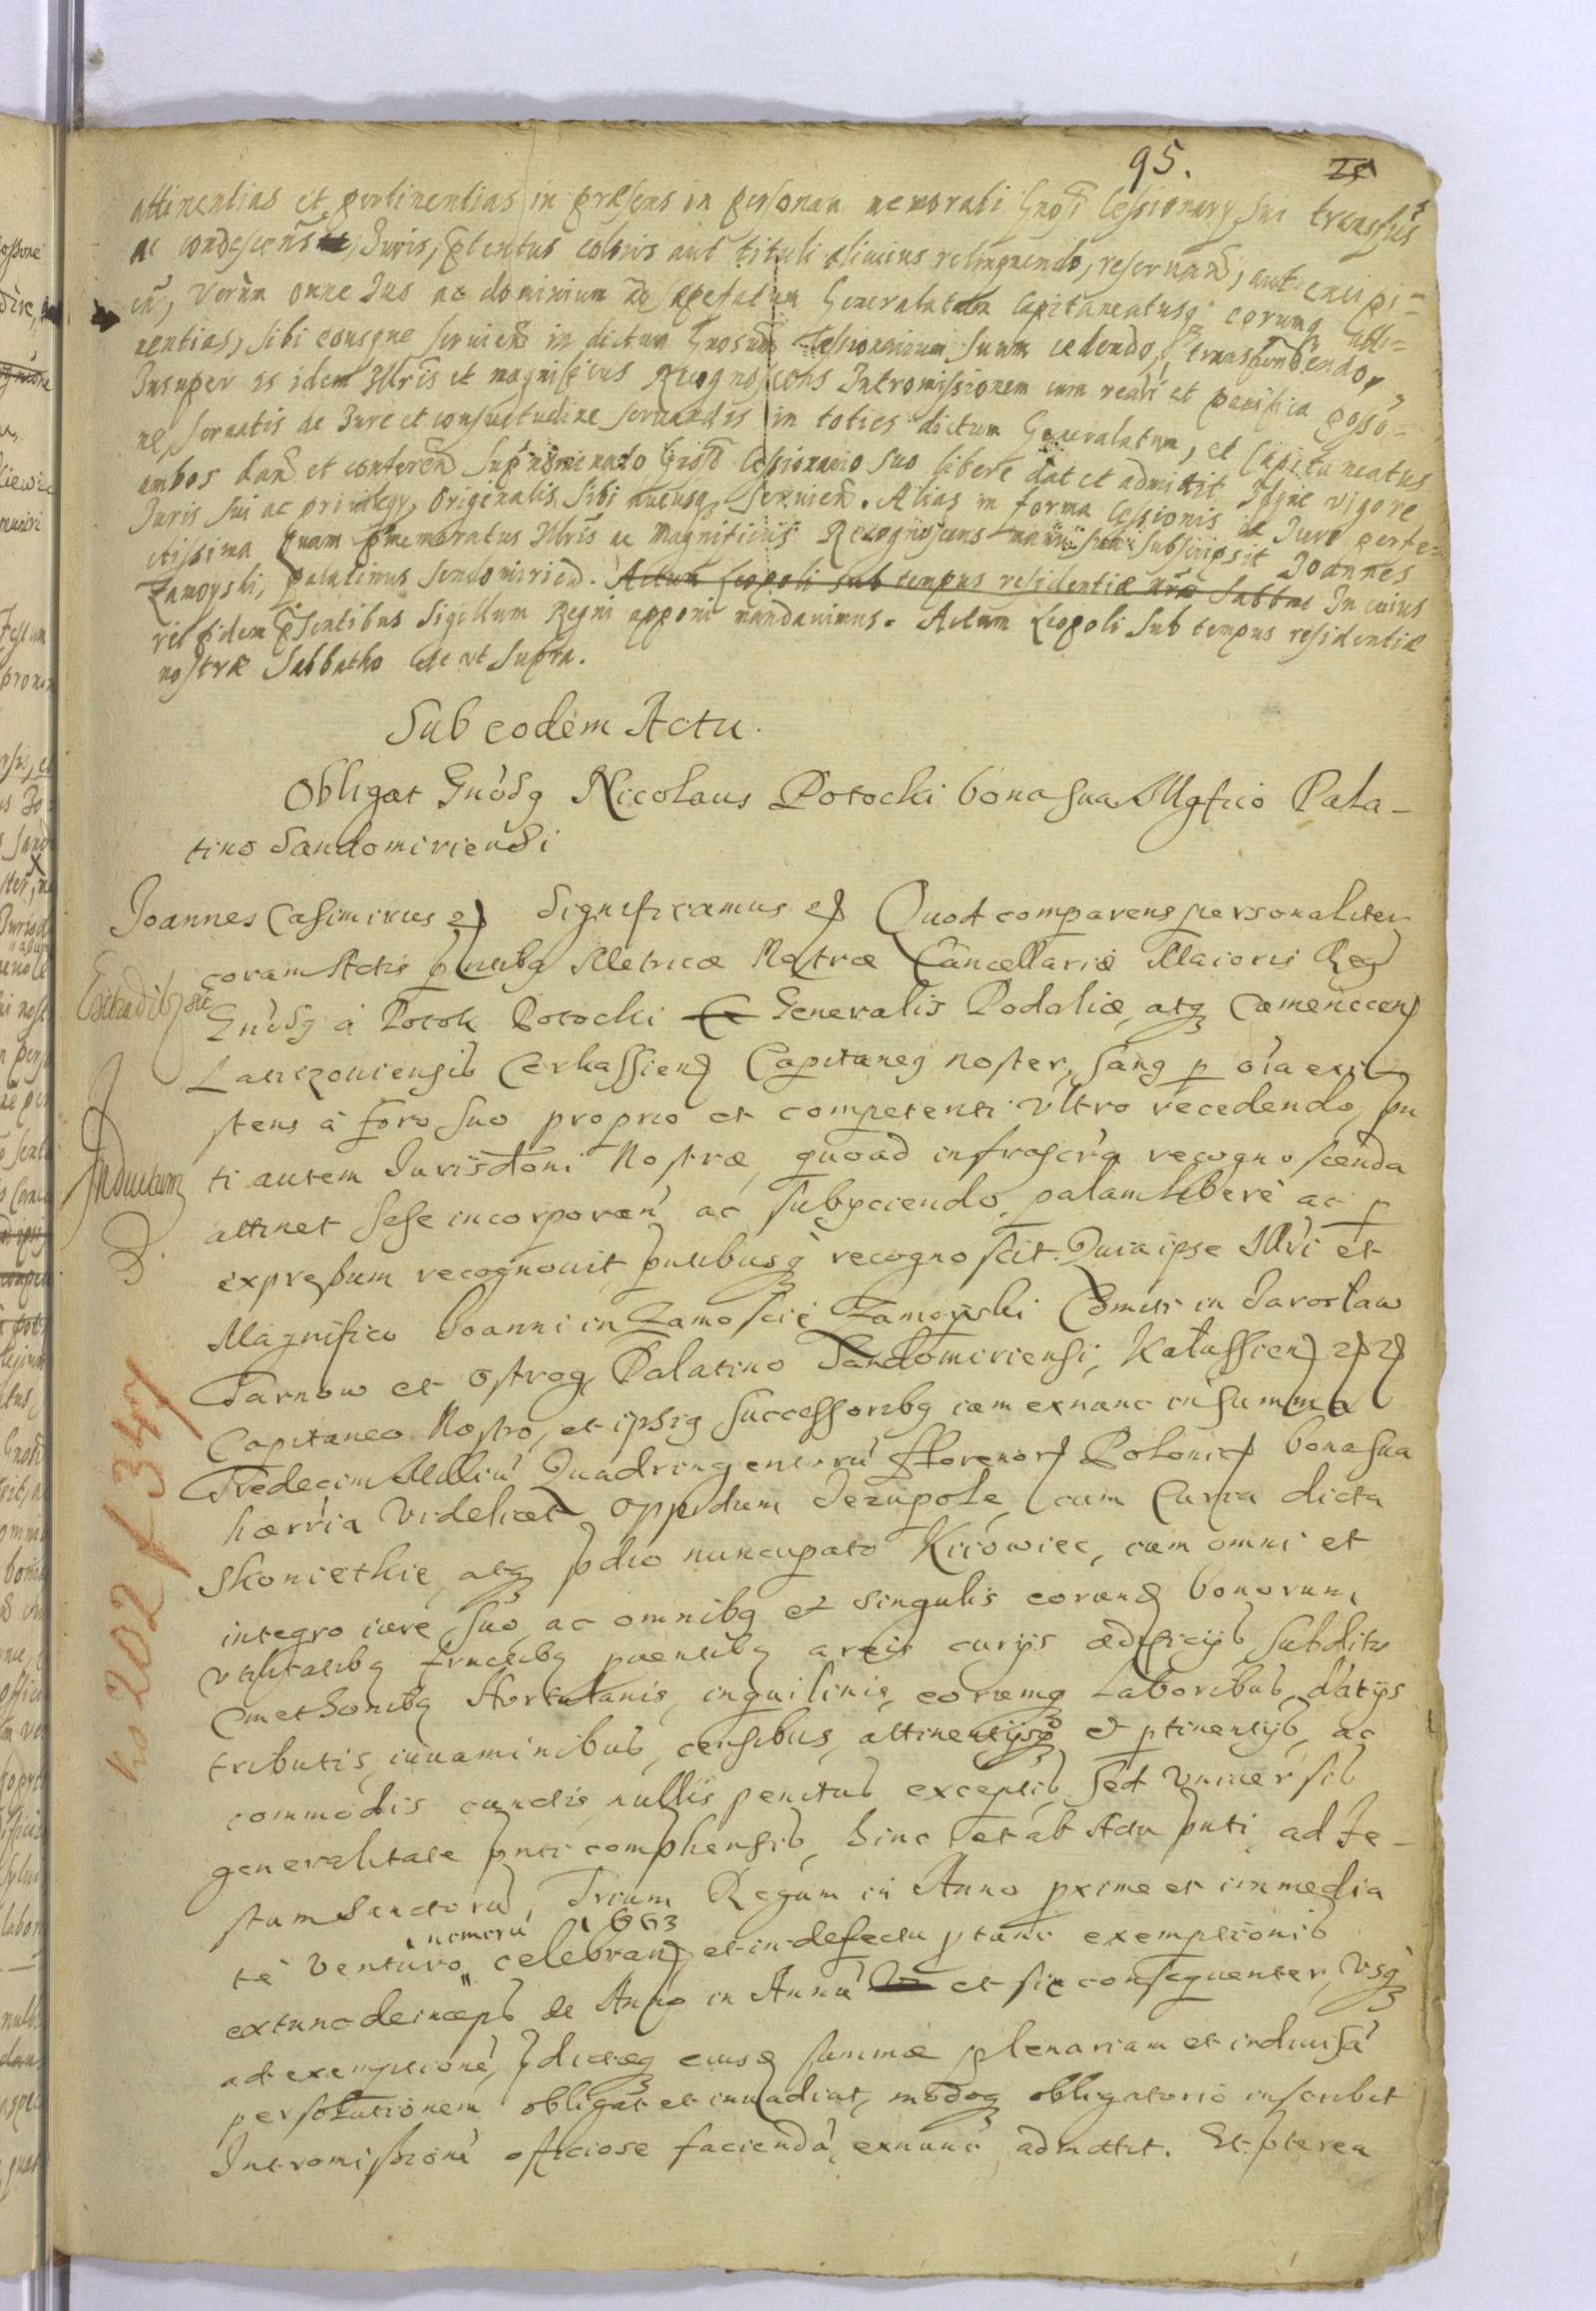 95.
attinentias et pertinentias in præsens in personam memorati Gnosi Cessionarij sui transfus
ac condescens Juris, ptentus coloris aut tituli alicuius relinquendo, reservand, aut excipi=
en, Verum omne Jus ac dominium ad Generalatum Capitaneatusq eorumq atti=
nentias, sibi eousque servien in dictum Gnosum Cessionarium suum cedendo, transfundendo,
Insuper is idem Illris et magnificus Recognoscens Intromissionem cum reali et pacifica posso=
ne, servatis de Jure et consuetudine servandis in toties dictum Generalatum, et Capitaneatus
ambos dand et conferen supnominato Gnoso Cessionario suo libere dat et admittit Idque vigore
Juris sui ac privilegy, Originalis sibi aucusq servien. Alias in forma Cessionis de Jure perfe=
ctissima Quam pmemoratus Illris ac Magnificus Recognoscens manu sua subscripsit Joannes
Zamoyski, palatinus Sendomirien. Actum Leopoli sub tempus residentiæ nræ Sabbat In cuius
rei fidem psentibus Sigillum Regni apponi mandavimus. Actum Leopoli sub tempus residentiæ
nostræ Sabbatho die ut supra.
Sub eodem Actu.
Obligat Gnosq Nicolaus Potocki bona sua Mgfico Pala-
tino Sandomiriensi
Joannes Casimirus Significamus Quod comparens personaliter
coram Actis pntibq Metricæ Nostræ Cancellariæ Maioris Reg
Gnosq à Potok Potocki Generalis Podoliæ, atq Camenecen
Laticzoviensis Cerkassien Capitaneq noster, sanq p oia exi-
stens à foro suo proprio et competenti Ultro recedendo, pn
ti autem Jurisdtoni Nostræ, quoad infrascra recognoscenda
Inductum
attinet sese incorporan ac subijciendo, palam libere ac p
expressum recognovit pntibusq recognoscit. Quia ipse Illri et
Magnifico Joanni in Zamoscie Zamoyski Comiti in Jarosław
Tarnow et Ostrog, Palatino Sandomiriensi, Kałussien
Capitaneo Nostro, et ipsiq successoribq iam exnunc in summa
Tredecim Milliu Quadringentoru florenor Polonic bona sua
hærria Videlicet Oppidum Jezupole, cum Curia dicta
Skoniethie, atq pdio nuncupato Kiiowiec, cum omni et
integro iure suo, ac omnibq et singulis eorund bonorum
Utilitatibq fructibq pventibq areis curijs ædificijs, Subditis
Cmethonibq Hortulanis, inquilinis, eorumq Laboribus, datijs
tributis, iuvaminibus, censibus, attinentijsq et ptinentijs, ac
commodis cunctis, nullis penitus exceptis, sed Universis
generalitate pnti comphensis, hinc et ab Actu pnti, ad Fe-
stum Sanctoru, Trium Regum in Anno pxime et immedia
numeru 1663
te Venturo celebran et in defectu ptunc exemptionis
extunc deinceps de Anno in Annu et sic consequenter, Usq
ad exemptione, pdictæq eiusd summæ plenariam et indivisa
persolutionem obligat et invadiat, modoq obligatorio inscribit
Intromissione officiose facienda, exnunc admittit. Et pterea
no 202 f 347